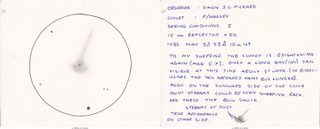 OBSERVER : SIMON J.C. PICKARD
COMET : P/HALLEY
SEEING CONDITIONS I
15 CM REFLECTOR × 50
1986
TO MY SURPRISE THE COMET IS BRIGHTENING
AGAIN (MAG 5.8). ONLY A LONG GAS (ION) TAIL
VISIBLE AT THIS TIME ABOUT 2° LONG (IN BINOC-
ULARS THE TAIL APPEARED FAINT BUT LONGER).
ALSO ON THE SUNWARD SIDE OF THE COMA
FAINT STREAMS COULD BE SEEN WRAPPING BACK.
ARE THESE THE BOW SHOCK.
STREAMS OF DUST
TRUE APPEARANCE
ON OTHER SIDE.